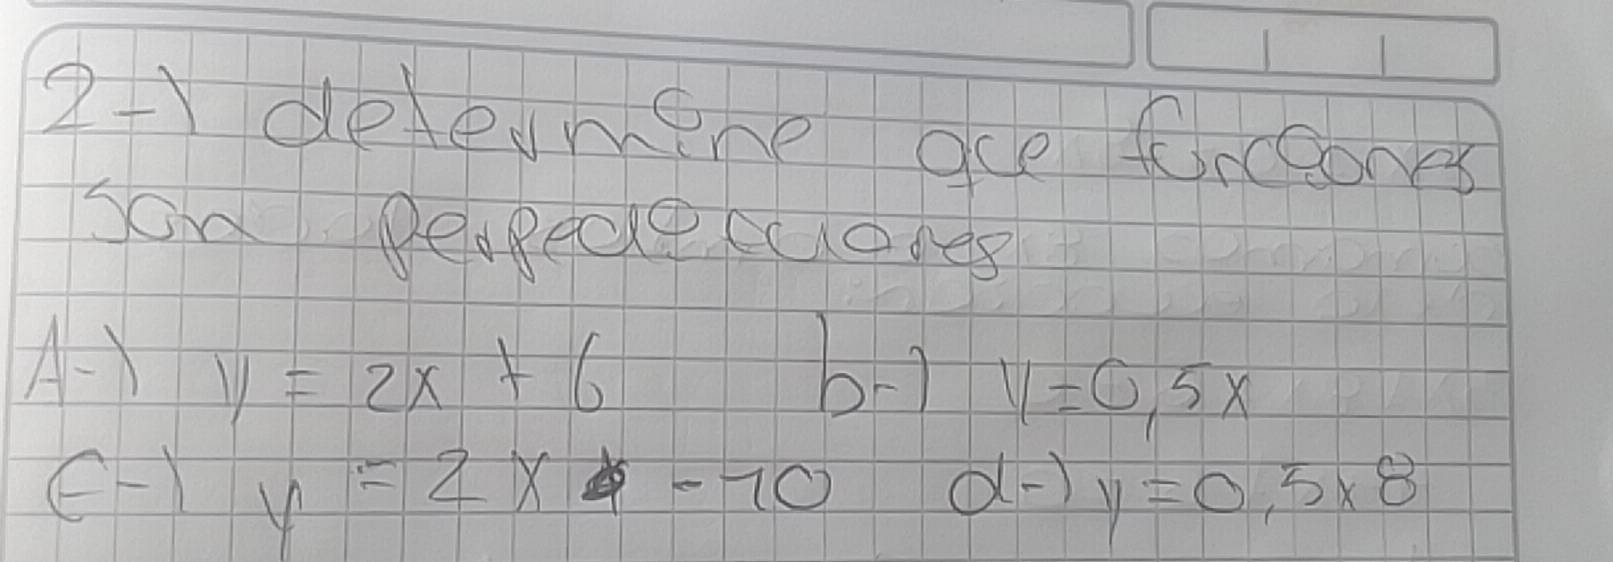 2-) determine que funciones
son perpediculares
A-) y = 2x + 6 b-) y=0,5x
c-) y = 2x - 10 d-) y=0,5x8